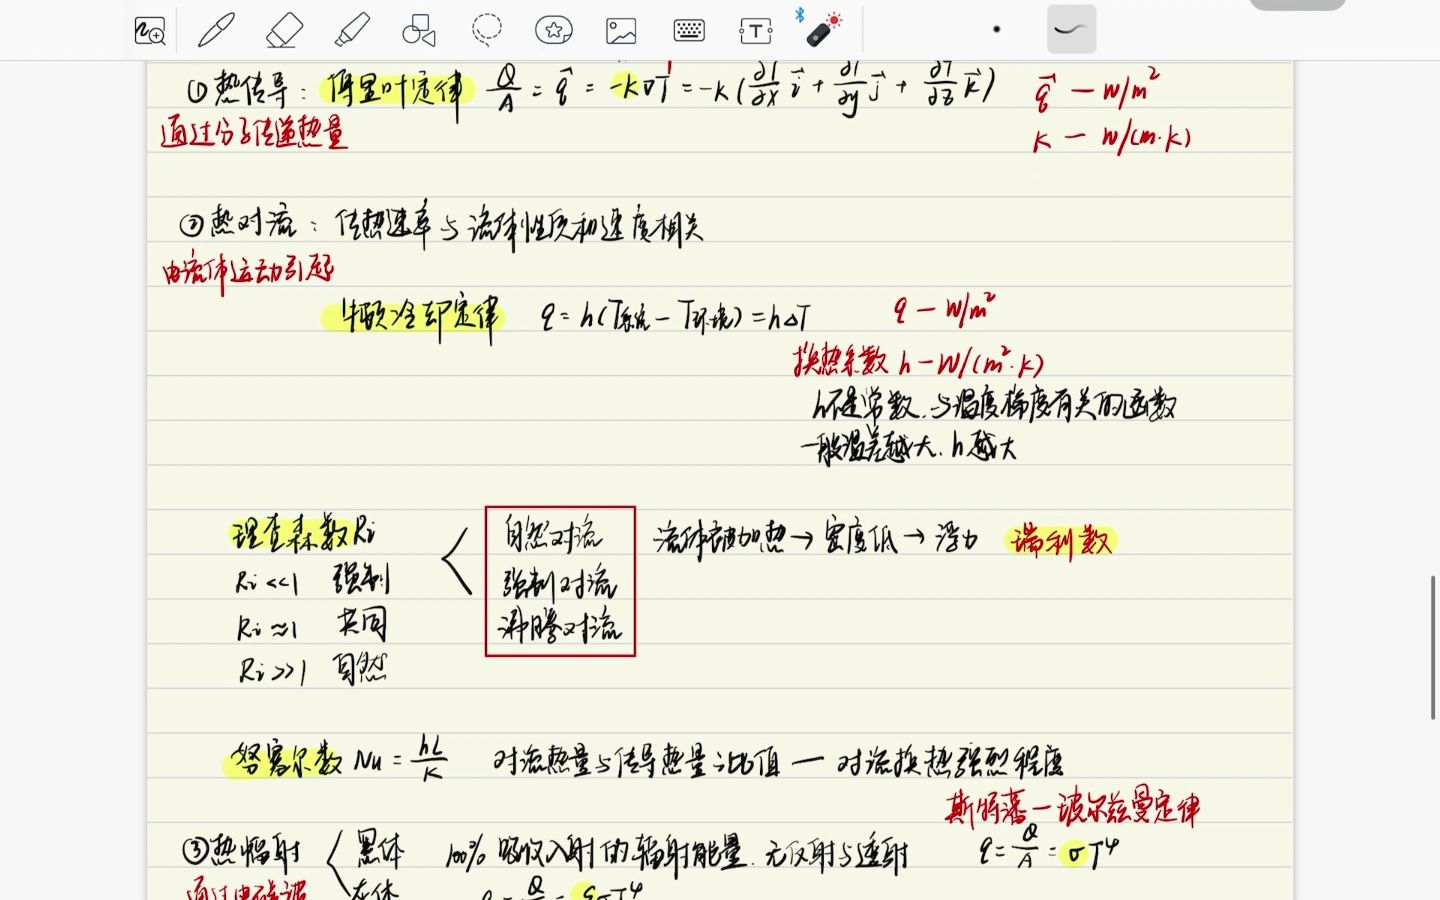 ①热传导：傅里叶定律 Q/A = q⃗ = -k∇T = -k(∂T/∂x i⃗ + ∂T/∂y j⃗ + ∂T/∂z k⃗) q⃗ — W/m²
通过分子传递热量 k — W/(m·k)
②热对流：传热速率与流体性质和速度相关
由流体运动引起
牛顿冷却定律 q = h(T系统 - T环境) = hΔT q — W/m²
换热系数 h — W/(m²·k)
h不是常数，与温度梯度有关的函数
一般温差越大，h越大
理查森数Ri 自然对流 流体被加热→密度低→浮力 瑞利数
Ri <<1 强制 强制对流
Ri ≈1 共同 沸腾对流
Ri >>1 自然
努塞尔数 Nu = hL/k 对流热量与传导热量之比值 — 对流换热强烈程度
斯特藩—玻尔兹曼定律
③热辐射 黑体 100% 吸收入射的辐射能量，无反射与透射 q = Q/A = σT⁴
通过电磁波 灰体